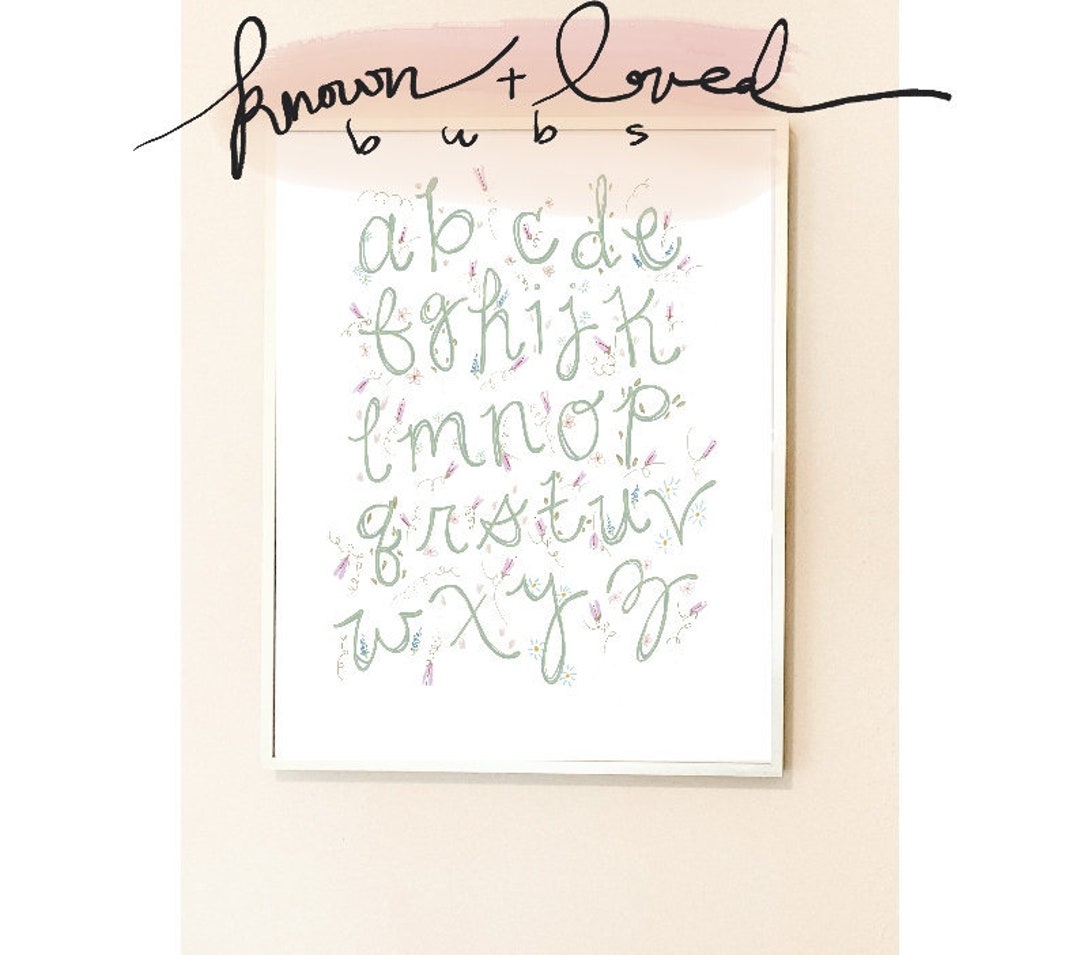 known + loved
bubs
a b c d e
f g h i j k
l m n o p
q r s t u v
w x y z